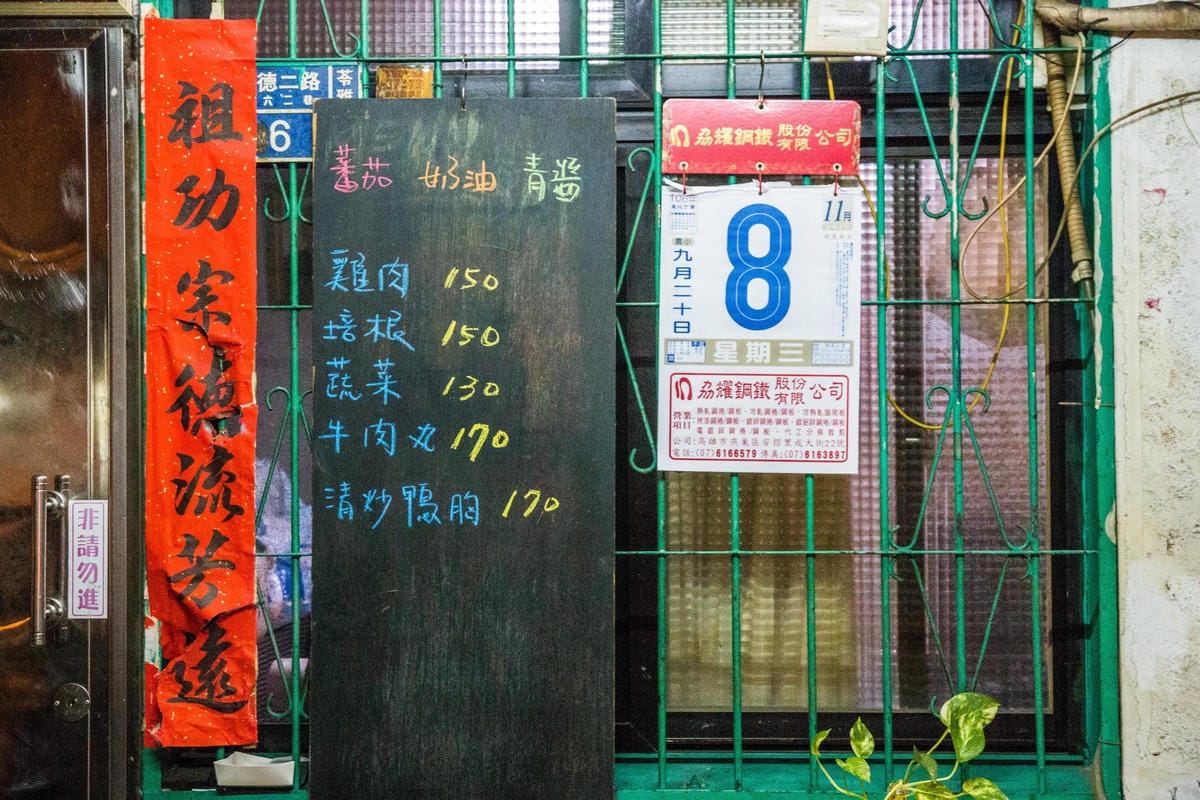 祖功宗德流芳遠
德二路
六二巷
苓雅
6
非請勿進
蕃茄 奶油 青醬
雞肉 150
培根 150
蔬菜 130
牛肉丸 170
清炒鴨胸 170
劦耀鋼鐵 股份有限 公司
106年
11月
8
農 小
九月二十日
星期三
劦耀鋼鐵 股份有限 公司
營業項目
公司:高雄市燕巢區安招里成大街22號
電話:(07)6166579 傳真:(07)6163897